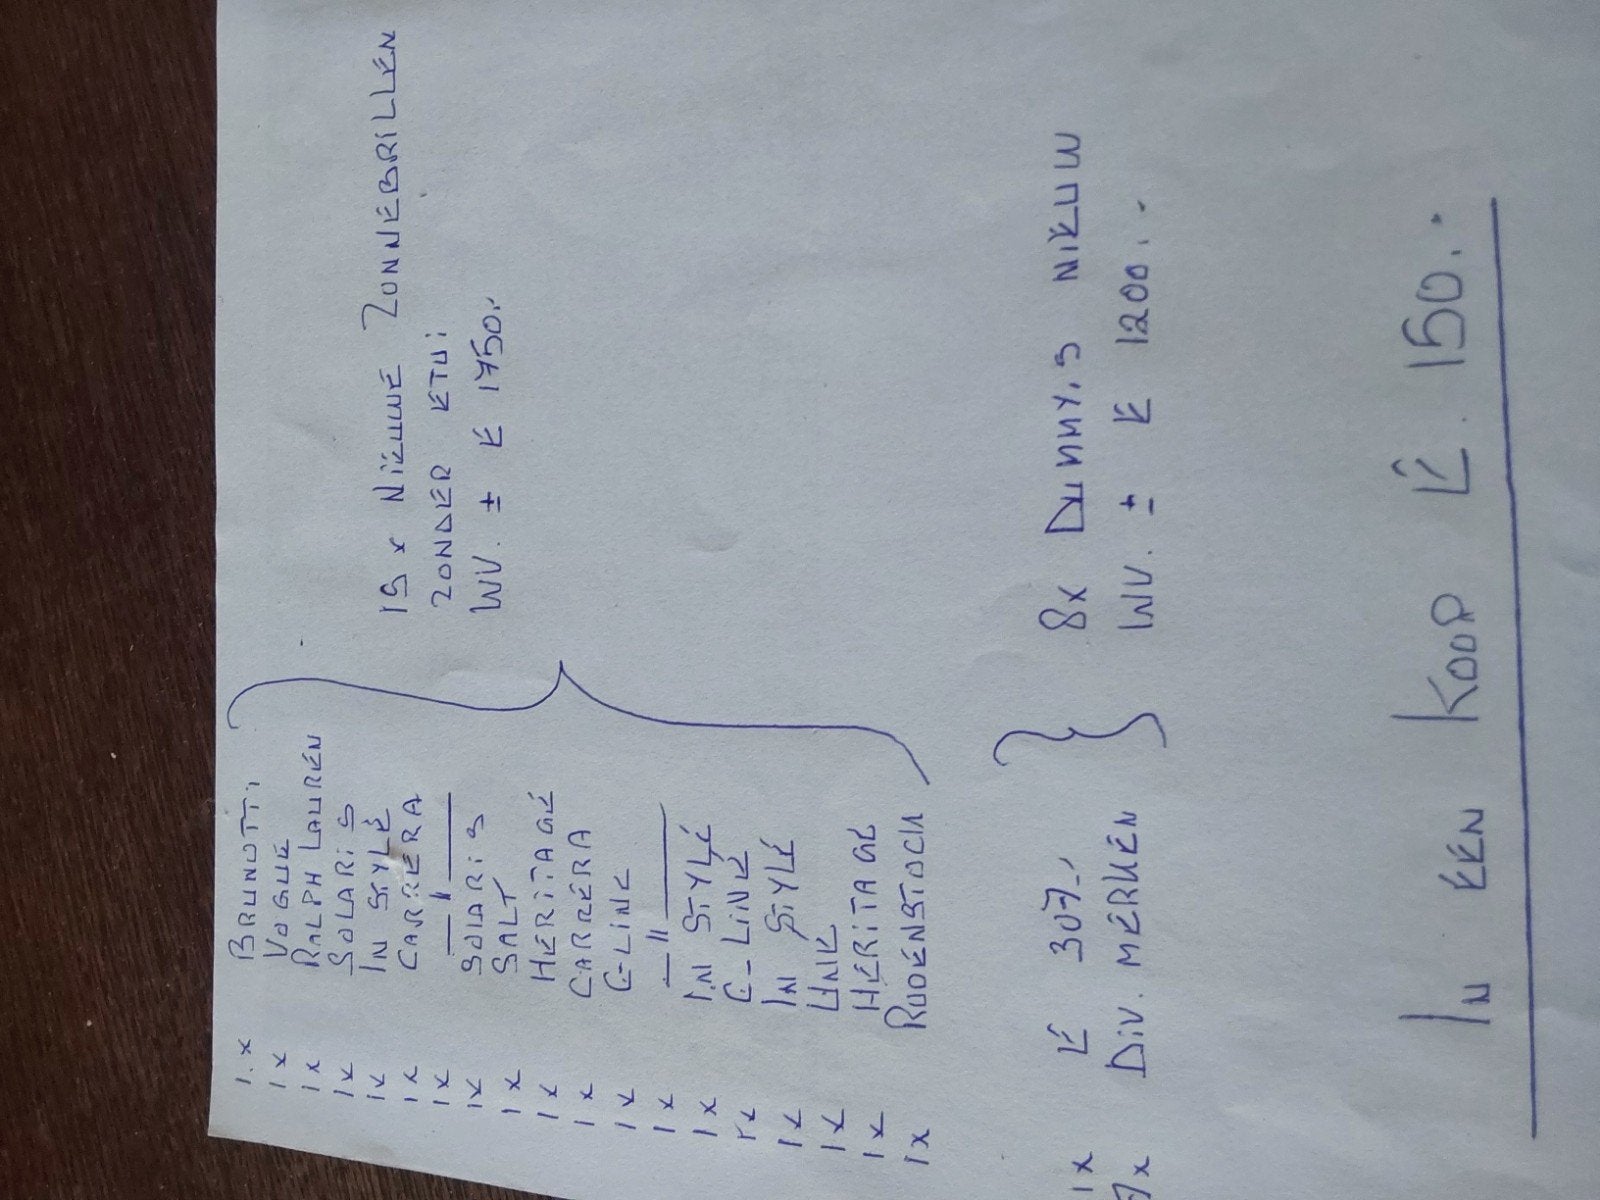 1.x BRUNOTTi
1x VOGUE
1x RALPH LAUREN
1x SOLARIS
1x IN STYLE
1x CARRERA
1x —〃—
1x SOLARIS
1x SALT
1x HERITAGE
1x CARRERA
1x C-LINE
1x —〃—
1x IN STYLE
1x C-LINE
1x IN STYLE
1x UNIK
1x HERITAGE
1x RODENSTOCK
19 x NIEUWE ZONNEBRILLEN
ZONDER ETUI
WV. ± € 1750,-
1x € 307,-
7x DIV. MERKEN
8x DUMMY,S NIEUW
WV. ± € 1200.-
IN EEN KOOP €. 150.-